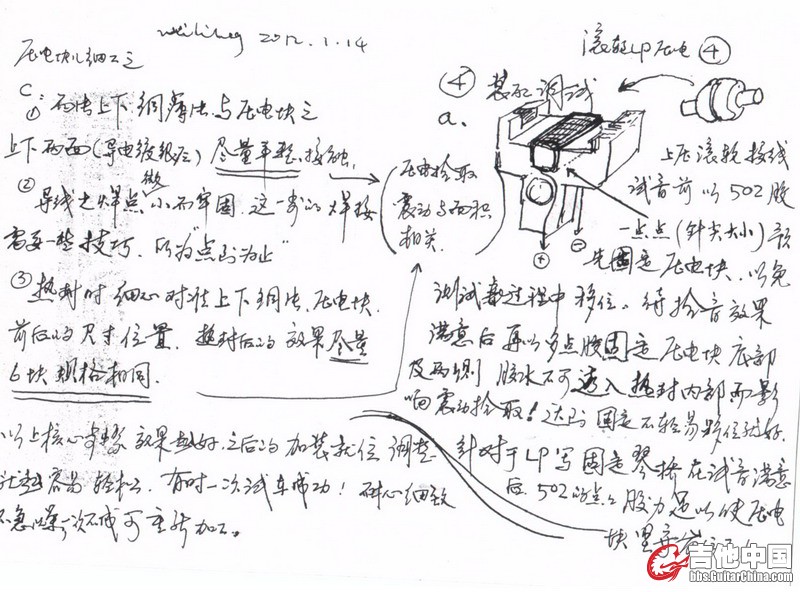 2012.1.14
压电块儿细工艺
C
① 两片上下铜薄片与压电块之
上下两面(导电镀银层)尽量平整接触,
② 导线之焊点微小而牢固,这一步的焊接
需要一些技巧,所为"点到为止"
③ 热封时细心对准上下铜片、压电块,
前后的尺寸位置,热封后的效果尽量
6块规格相同.
压电拾取
震动与面积
相关.
以上核心步骤效果越好,之后的加装就位调整
就越容易轻松,有时一次试车成功!耐心细致
不急噪,一次不成可重新加工。
滚轮LP压电 ④
④ 装配调试
a.
⊕ ⊖
上压滚轮接线
试音前以502胶
一点点(针尖大小)预
先固定压电块,以免
测试过程中移位.待拾音效果
满意后再以多点胶固定压电块底部
及两侧 胶水不可透入热封内部而影
响震动拾取!达到固定不轻易移位就好.
针对于LP写固定琴桥在试音满意
后,502的点点胶力足以使压电
块坚
吉他中国
bbs.GuitarChina.com